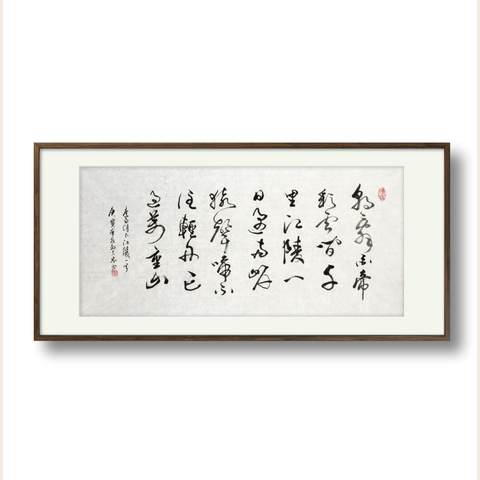 朝辭白帝
彩雲間千
里江陵一
日還兩岸
猿聲啼不
住輕舟已
過萬重山
李白詩下江陵一首
庚寅年